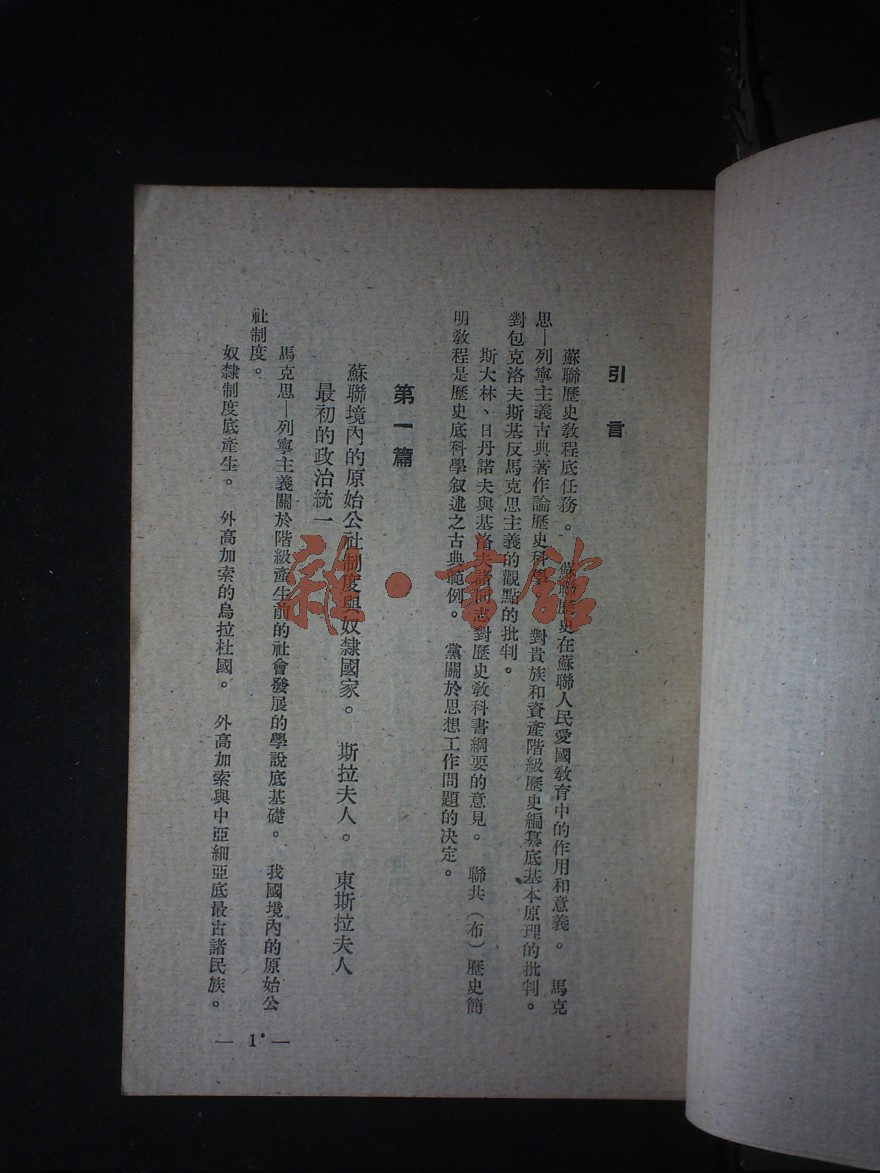 引言
蘇聯歷史敎程底任務。　蘇聯歷史在蘇聯人民愛國敎育中的作用和意義。　馬克
思—列寧主義古典著作論歷史科學。　對貴族和資產階級歷史編纂底基本原理的批判。
對包克洛夫斯基反馬克思主義的觀點的批判。
斯大林、日丹諾夫與基洛夫諸同志對歷史敎科書綱要的意見。　聯共（布）歷史簡
明敎程是歷史底科學叙述之古典範例。　黨關於思想工作問題的決定。
第一篇
蘇聯境內的原始公社制度與奴隸國家。　斯拉夫人。　東斯拉夫人
最初的政治統一
馬克思—列寧主義關於階級產生前的社會發展的學說底基礎。　我國境內的原始公
社制度。
奴隸制度底產生。　外高加索的烏拉杜國。　外高加索與中亞細亞底最古諸民族。
— 1* —
雜·書館